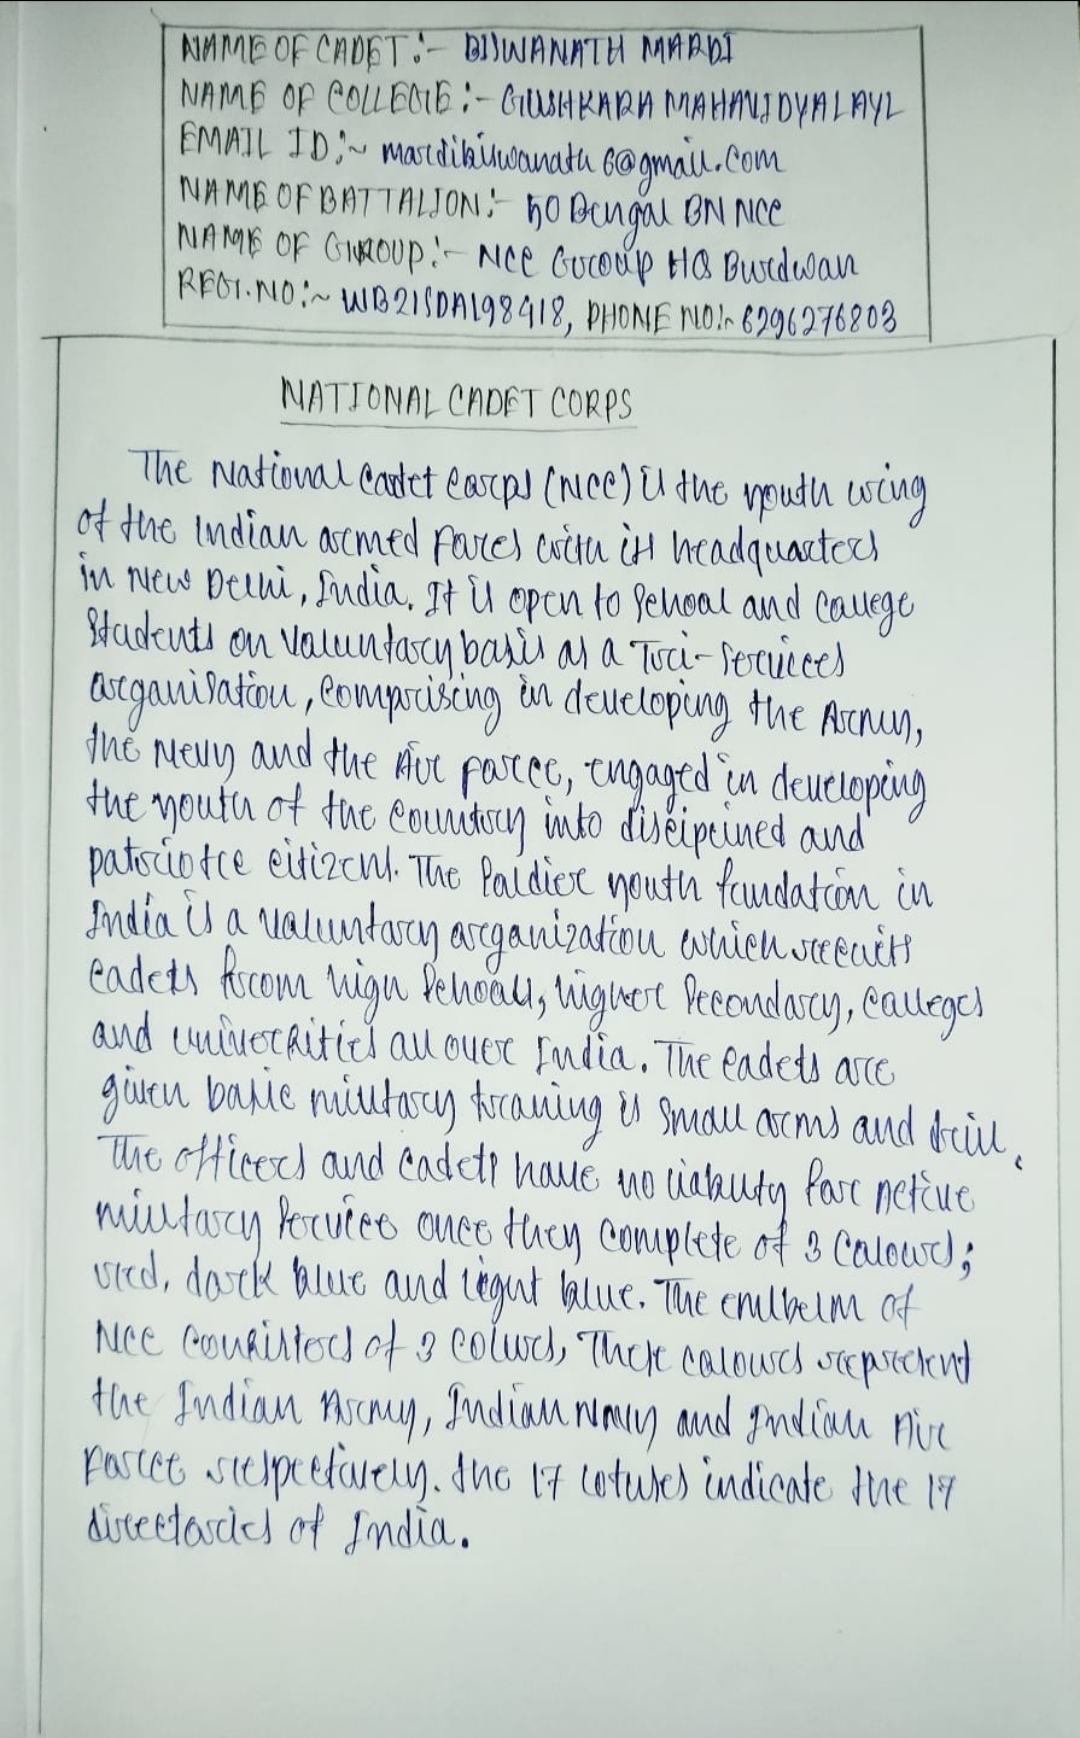 NAME OF CADET :- BISWANATH MARDI
NAME OF COLLEGE :- GUSHKARA MAHAVIDYALAYA
EMAIL ID :- mardibiswanath6@gmail.com
NAME OF BATTALION :- 50 Bengal BN NCC
NAME OF GROUP :- NCC Group HQ Burdwan
REGT. NO :- WB21SDA198418, PHONE NO :- 6296276803
NATIONAL CADET CORPS
The National Cadet Corps (NCC) is the youth wing
of the Indian armed Forces with its headquarters
in New Delhi, India. It is open to School and College
Students on Voluntary basis as a Tri-Services
organisation, Comprising in developing the Army,
the Nevy and the Air force, engaged in developing
the youth of the Country into disciplined and
patriotce citizens. The Soldier youth fundation in
India is a Voluntary organization which recruits
Cadets from high Schools, higher Secondary, Colleges
and universities all over India. The Cadets are
given basic military traning is Small arms and drill.
The officers and Cadets have no liability for Active
military Service once they Complete of 3 Colours;
red, dark blue and light blue. The emlbelm of
NCC Consisters of 3 Colurs, These Colours represent
the Indian Army, Indian Navy and Indian Air
Force respectively. the 17 lotuses indicate the 17
directories of India.